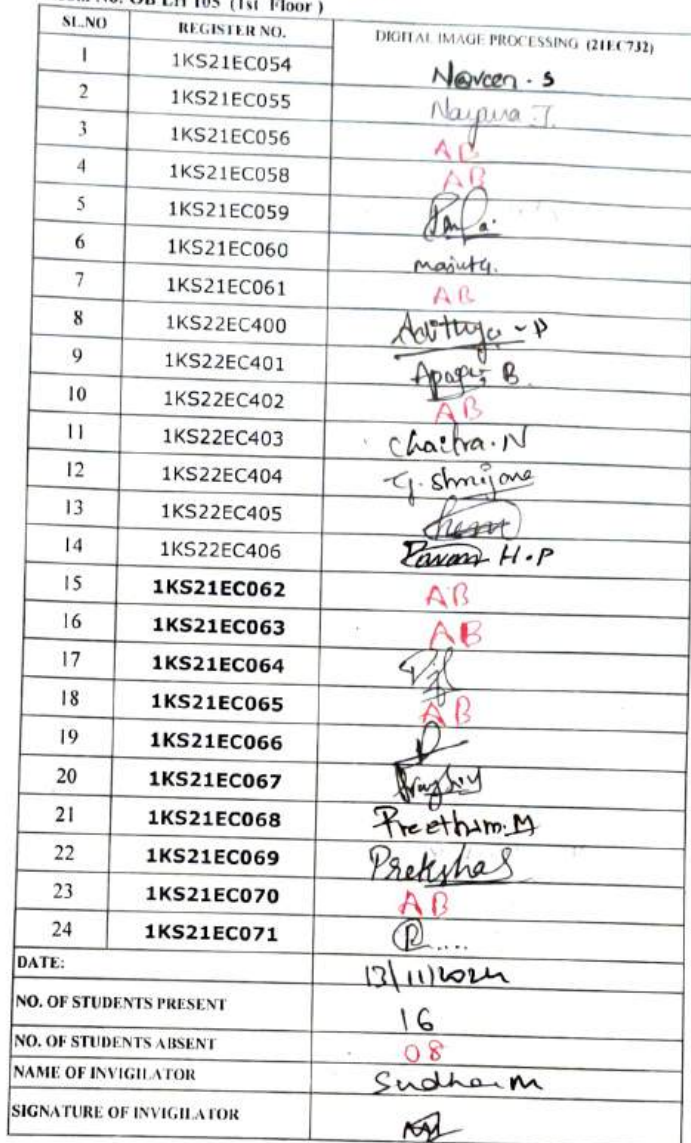 No. OB LH 105 (1st Floor)
SL.NO REGISTER NO. DIGITAL IMAGE PROCESSING (21EC732)
1 1KS21EC054 Naveen. S
2 1KS21EC055 Nayana J.
3 1KS21EC056 AB
4 1KS21EC058 AB
5 1KS21EC059
6 1KS21EC060
7 1KS21EC061 AB
8 1KS22EC400
9 1KS22EC401 B
10 1KS22EC402 AB
11 1KS22EC403 Chaitra. N
12 1KS22EC404
13 1KS22EC405
14 1KS22EC406 Pavan H.P
15 1KS21EC062 AB
16 1KS21EC063 AB
17 1KS21EC064
18 1KS21EC065 AB
19 1KS21EC066
20 1KS21EC067
21 1KS21EC068 Preetham. M
22 1KS21EC069 Preksha S
23 1KS21EC070 AB
24 1KS21EC071
DATE: 13/11/2024
NO. OF STUDENTS PRESENT 16
NO. OF STUDENTS ABSENT 08
NAME OF INVIGILATOR Sudha M
SIGNATURE OF INVIGILATOR